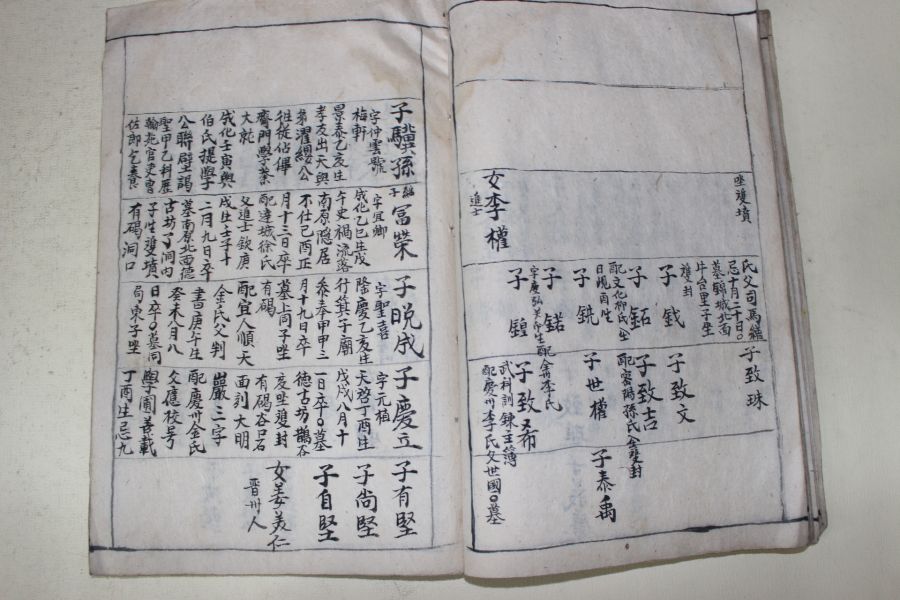 坐雙墳
女李權
進士
氏父司馬繼
忌十月二十日○
墓錦城北面
子坐
雙封
子鉞
子鉐
配文化柳氏
子銑
子鍩
子鍠
子致珠
子致文
子致吉
配密陽孫氏
雙封
子世權
武科訓鍊主簿
配慶州李氏父世國○墓
子泰禹
子驥孫
字仲雲號
梅軒
景泰乙亥生
孝友出天與
弟濯纓公
往從佔畢
齋門學業
大就
成化壬寅與
伯氏提學
公聯壁謁
聖甲乙科歷
翰苑官吏曹
佐郎乞養
子富榮
字宜卿
成化乙巳生戊
午史禍流落
南原隱居
不仕己酉正
月十三日卒
配達城徐氏
父進士欽庚
戌生壬子十
二月九日卒
墓南原北面德
古坊
洞內
子坐雙墳
有碣洞口
子晩成
字聖喜
隆慶乙亥生
行箕子廟
參奉甲申三
月十九日卒
墓上同子坐
有碣
配宜人順天
金氏父判
書庚午生
癸未八月八
日卒○墓同
局東子坐
子慶立
字元植
天啓丁酉生
戊戌八月十
一日卒○墓
德古坊鵲谷
亥坐雙封
有碣谷口石
面刻大明
巖三字
配慶州金氏
父應校号
學圃善載
丁酉生忌九
子有堅
子尚堅
子自堅
女姜美仁
晋州人